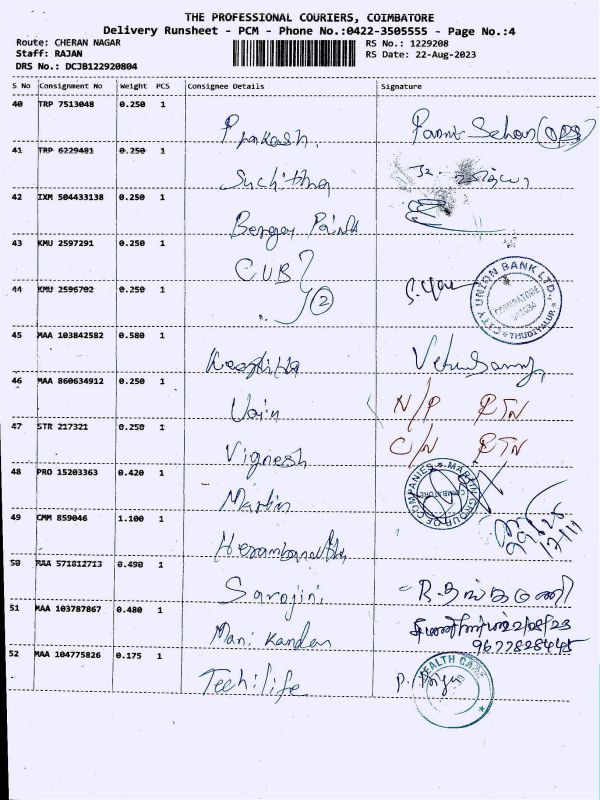 THE PROFESSIONAL COURIERS, COIMBATORE
Delivery Runsheet - PCM - Phone No.:0422-3505555 - Page No.:4
Route: CHERAN NAGAR RS No.: 1229208
Staff: RAJAN RS Date: 22-Aug-2023
DRS No.: DCJB122920804
S No Consignment No Weight PCS Consignee Details Signature
40 TRP 7513048 0.250 1
Prakash.
41 TRP 6229481 0.250 1
Suchithra
42 IXM 504433138 0.250 1
Berger Paints
43 KMU 2597291 0.250 1
C.U.B
44 KMU 2596702 0.250 1
2
CITY UNION BANK LTD., COIMBATORE THUDIYALUR
45 MAA 103842582 0.580 1
46 MAA 860634912 0.250 1
N/P RTN
47 STR 217321 0.250 1
Vignesh C/N RTN
48 PRO 15203363 0.420 1
Martin MARTIN GROUP OF COMPANIES COIMBATORE
49 CMM 859046 1.100 1
50 MAA 571812713 0.490 1
Sarojini R. தங்கமணி
51 MAA 103787867 0.480 1
Mani Kandan 22/08/23
9677828445
52 MAA 104775826 0.175 1
Techilife HEALTH CARE